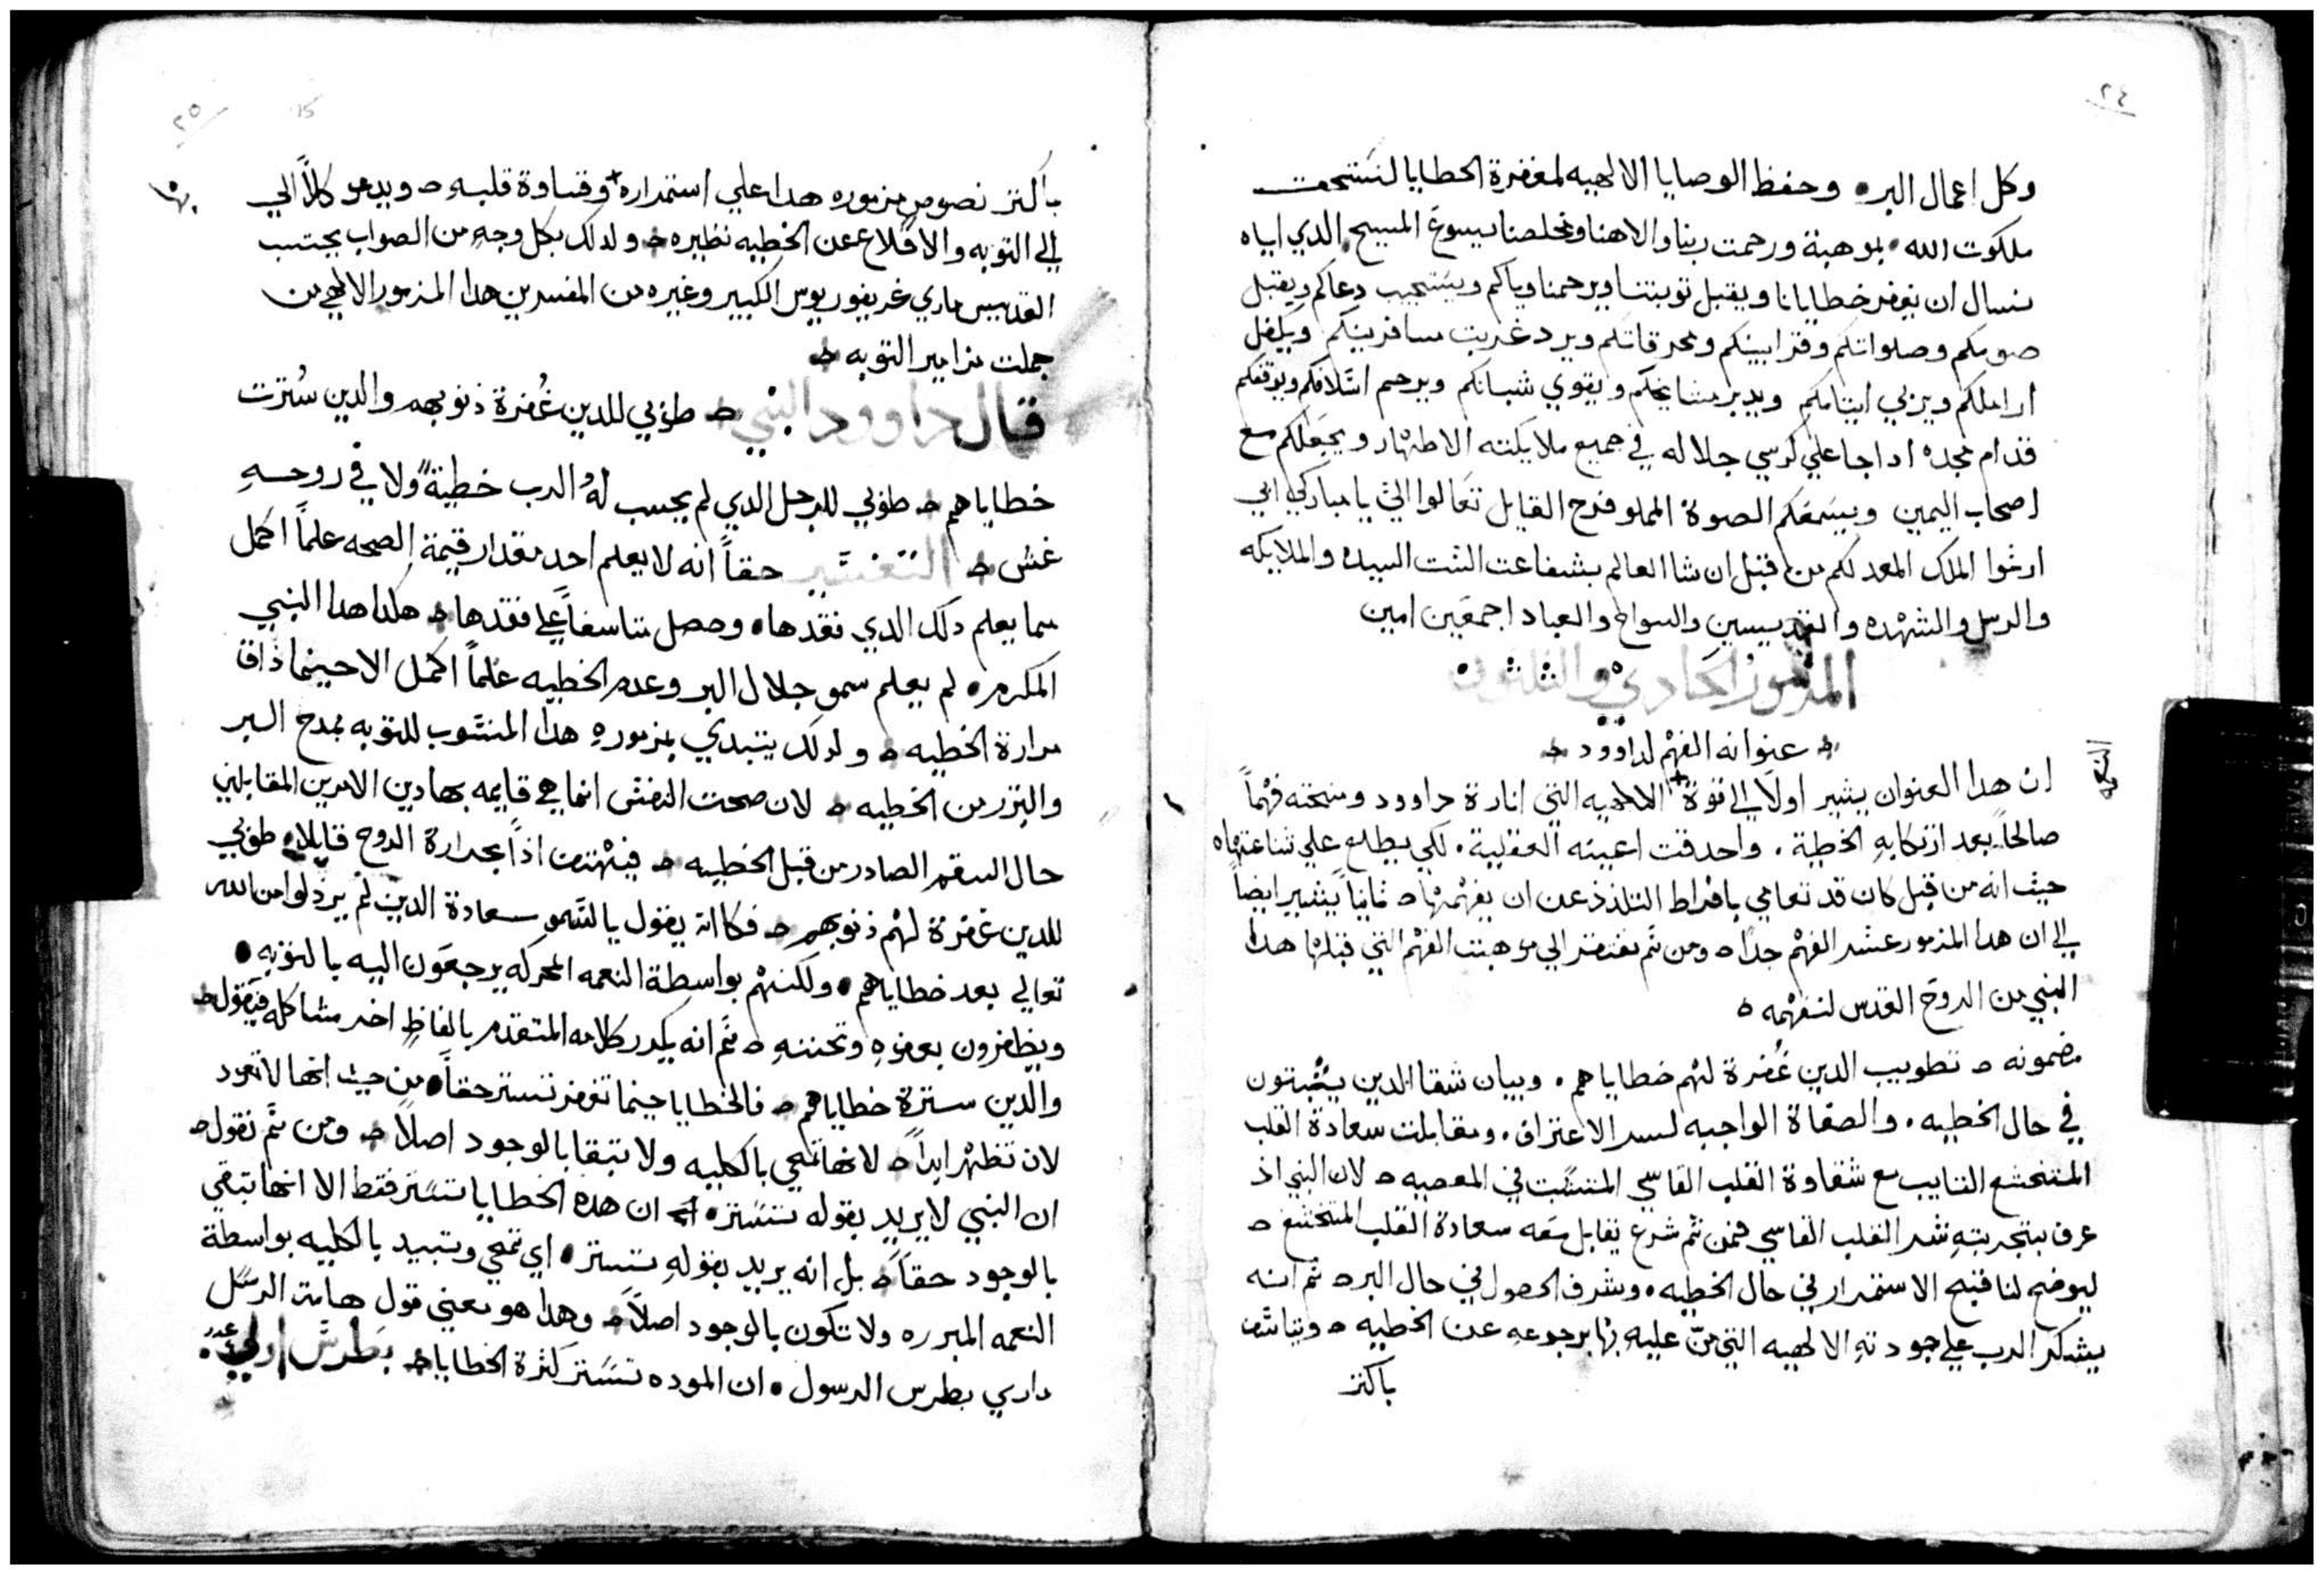 ٢٤
وكل اعمال البر • وحفظ الوصايا الالهيه لمغفرة الخطايا لنستحق
ملكوت الله • بموهبة ورحمت ربنا والاهنا ومخلصنا يسوع المسيح الدي اياه
نسال ان يغفر خطايانا ويقبل توبتنا ويرحمنا وياكم ويستجيب دعاكم ويقبل
صومكم وصلواتكم وقرابينكم ومحرقاتكم ويرد غربت مسافرينكم ويكفل
اراملكم ويربي ايتامكم ويدبر مشايخكم ويقوي شبانكم ويرحم اسلافكم ويوقفكم
قدام مجده ادا جا علي كرسي جلاله في جميع ملايكته الاطهار ويجعلكم مع
اصحاب اليمين ويسمعكم الصوة المملو فرح القايل تعالوا اليّ يا مباركي ابي
ارثوا الملك المعد لكم من قبل ان شا العالم بشفاعت الست السيده والملايكه
والرسل والشهده والقديسين والسواح والعباد اجمعين امين
المزمور الحادي والثلثون
عنوانه المفهم لداوود
ان هدا العنوان يشير اولاً الي قوة + الالاهيه التي انارة داوود ومنحته فهماً
النعمه
صالحاً بعد ارتكابه الخطية . واحدقت اعينه العقلية . لكي يطلع علي شناعتها ه
حيث انه من قبل كان قد تعامي بافراط التلذذ عن ان يفهمها ه ثانياً يشير ايضاً
الي ان هدا المزمور عسر الفهم جدا ه ومن ثم نفتقر الي موهبت الفهم التي قبلها هدا
النبي من الروح القدس لنفهمه ه
مضمونه ه تطويب الدين غُفرة لهم خطاياهم . وبيان شقا الدين يثبتون
في حال الخطيه . والصفاة الواجبه لسر الاعتراف . ومقابلت سعادة القلب
المتخشع التايب مع شقاوة القلب القاسي المتشبت في المعصيه ه لان النبي اذ
عرف بتجربتهِ شر القلب القاسي فمن ثم شرع يقابل معه سعادة القلب المتخشع ه
ليوضح لنا قبح الاستمرار في حال الخطيه • وشرف الحصول في حال البر ه ثم انه
يشكر الرب علي جودته الالهيه التي منّ عليه بها برجوعه عن الخطيه ه ويتاسف
باكثر
٢٥
باكثر نصوص مزموره هدا علي استمراره + وقساوة قلبهِ ه ويدعو كلاً الي
بها
الي التوبه والاقلاع عن الخطيه نظيره ه ولدلك بكل وجهٍ من الصواب يحتسب
القديس ماري غريغوريوس الكبير وغيره من المفسرين هدا المزمور الالهي من
جملت مزامير التوبه ه
قال داوود النبي ه طوبي للدين غُفرة ذنوبهم والدين سُترت
خطاياهم ه طوبي للرجل الدي لم يحسب لهُ الرب خطيةً ولا في روحهِ
غش ه التفسير حقاً انه لا يعلم احد مقدار قيمة الصحه علماً اكمل
مما يعلم دلك الدي فقدها • وحصل متاسفاً علي فقدها ه هكدا هدا النبي
المكرم • لم يعلم سمو جلال البر وعدم الخطيه علماً اكمل الا حينما ذاق
مرارة الخطيه ه ولدلك يبتدي بمزمورهِ هدا المنسوب للتوبه بمدح البر
والتبرر من الخطيه ه لان صحت النفس انما هي قايمه بهادين الامرين المقابلين
حال السقم الصادر من قبل الخطيه ه فيهتف اذاً بحرارة الروح قايلا • طوبي
للدين غفرة لهم ذنوبهم ه فكانه يقول يا لسمو سعادة الدين لم يرذلوا من الله
تعالي بعد خطاياهم • ولكنهم بواسطة النعمه المحركه يرجعون اليه بالتوبه •
ويظفرون بعفوهِ وتحننهِ ه ثم انه يكرر كلامه المتقدم بالفاظٍ اخر مشاكله فيقول ه
والدين سترة خطاياهم ه فالخطايا حينما تغفر تستر حقاً • من حيث انها لا تعود
لان تظهر ابداً ه لانها تمحي بالكليه ولا تبقا بالوجود اصلاً ه ومن ثم نقول ه
ان النبي لا يريد بقوله تستتر • ان هده الخطايا تستتر فقط الا انها تبقي
بالوجود حقاً ه بل انه يريد بقولهِ تستتر • اي تمحي وتبيد بالكليه بواسطة
النعمه المبرره ولا تكون بالوجود اصلاً ه وهدا هو معني قول هامت الرسل
ماري بطرس الرسول • ان الموده تستر كثرة الخطايا ه بطرس اولي ع‍‍دد ٤